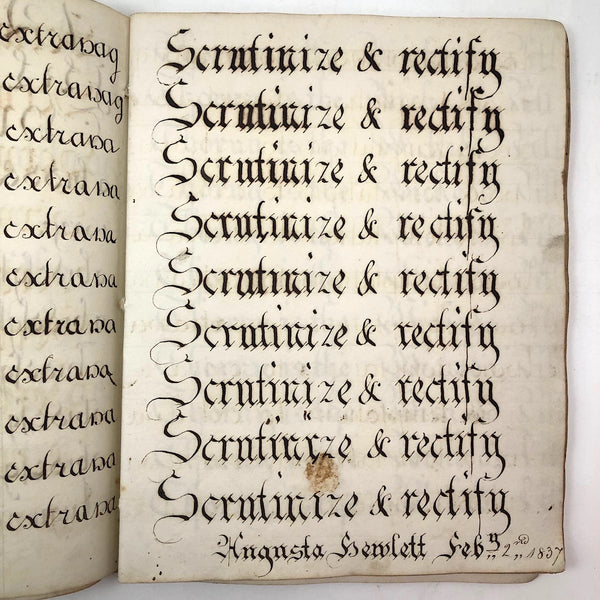 extravag
extravag
extrava
extrava
extrava
extrava
extrava
extrava
extrava
extrava
extrava
Scrutinize & rectify
Scrutinize & rectify
Scrutinize & rectify
Scrutinize & rectify
Scrutinize & rectify
Scrutinize & rectify
Scrutinize & rectify
Scrutinize & rectify
Scrutinize & rectify
Augusta Hewlett Feby 2nd 1837